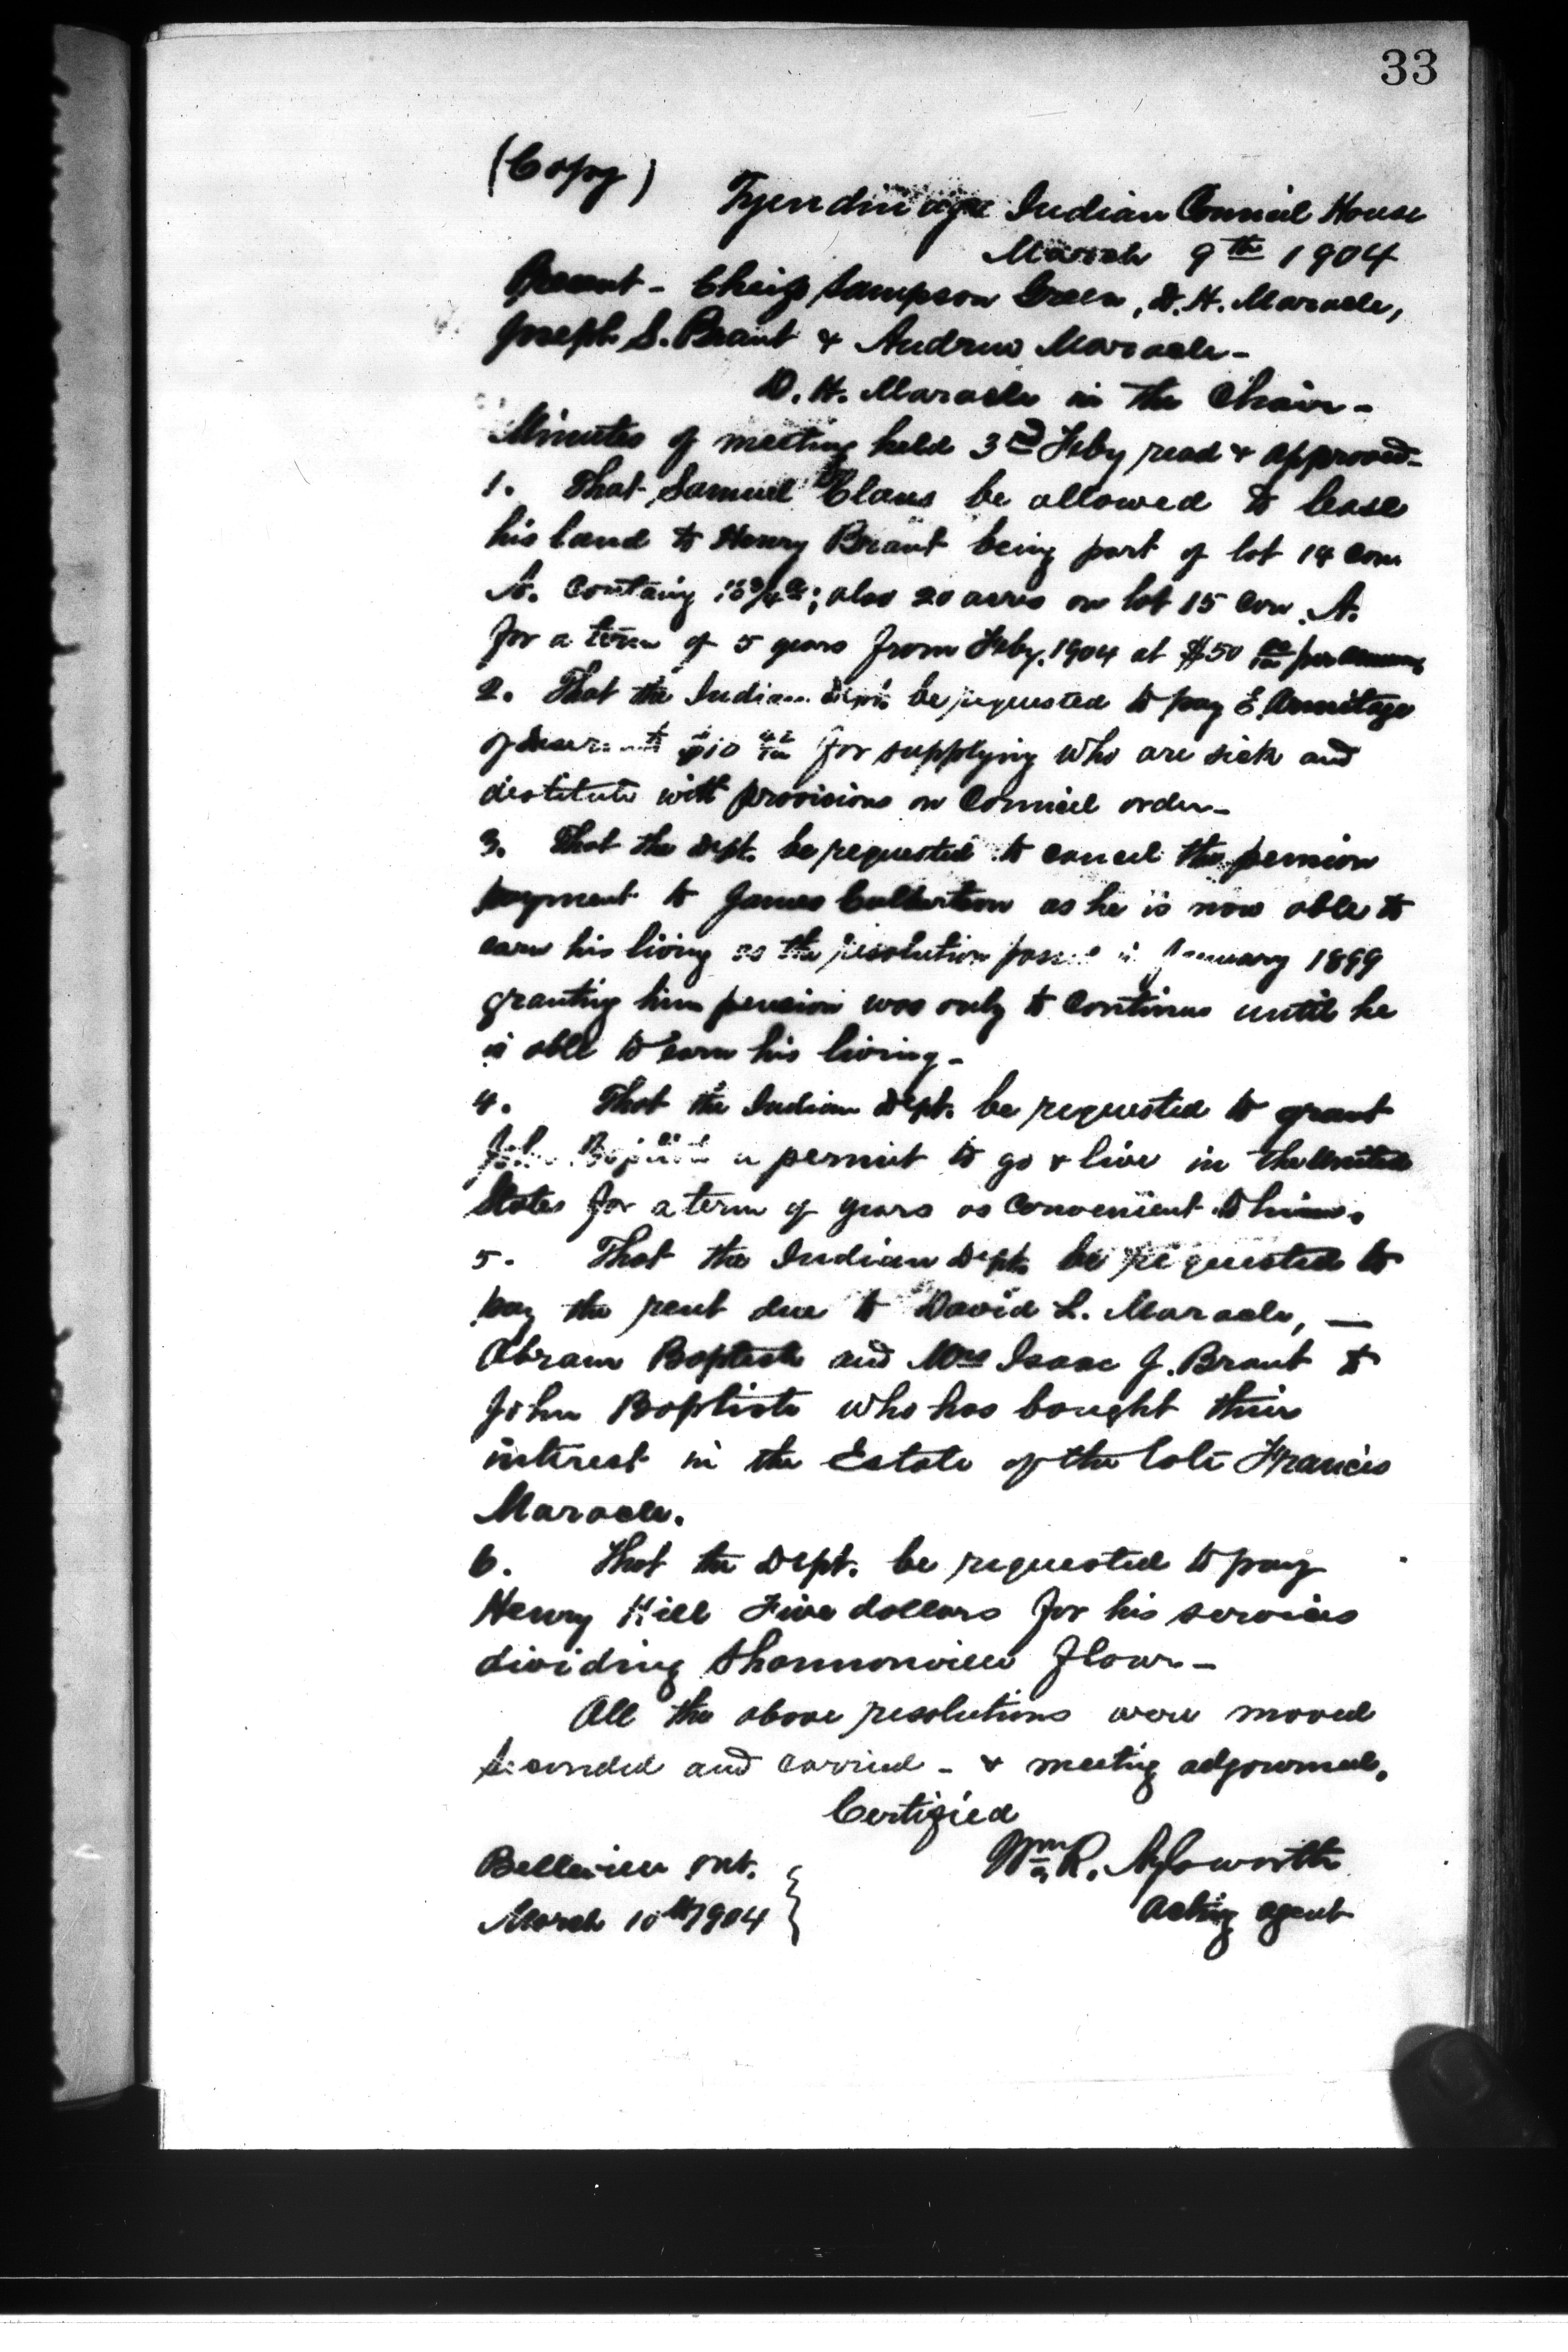 33
(Copy)
Tyendinaga Indian Council House
March 9th 1904
Present - Chiefs Sampson Green, D. H. Maracle,
Joseph S. Brant & Andrew Maracle -
D. H. Maracle in the Chair -
Minutes of meeting held 3rd Feby read & approved -
1. That Samuel Claus be allowed to lease
his land to Henry Brant being part of lot 14 Con
A. Containg ; also 20 acres on lot 15 Con. A.
for a term of 5 years from Feby. 1904 at $50 00/100 per annum,
2. That the Indian Dept. be requested to pay E. Armitage
of Deseronto $10 42/100 for supplying who are sick and
destitute with provisions on Council order -
3. That the Dept. be requested to cancel the pension
payment to James Culbertson as he is now able to
earn his living as the resolution passed in January 1899
granting him pension was only to continue until he
is able to earn his living -
4. That the Indian Dept. be requested to grant
John Baptiste a permit to go & live in the United
States for a term of years as convenient to him.
5. That the Indian Dept. be requested to
pay the rent due to David L. Maracle, —
Abram Baptiste and Mrs Isaac J. Brant to
John Baptiste who has bought their
interest in the Estate of the late Francis
Maracle.
6. That the Dept. be requested to pay
Henry Hill Five dollars for his services
dividing Shannonville flour -
All the above resolutions were moved
seconded and carried - & meeting adjourned.
Certified
Belleville Ont. Wm R. Aylsworth
March 10th 1904 Acting Agent